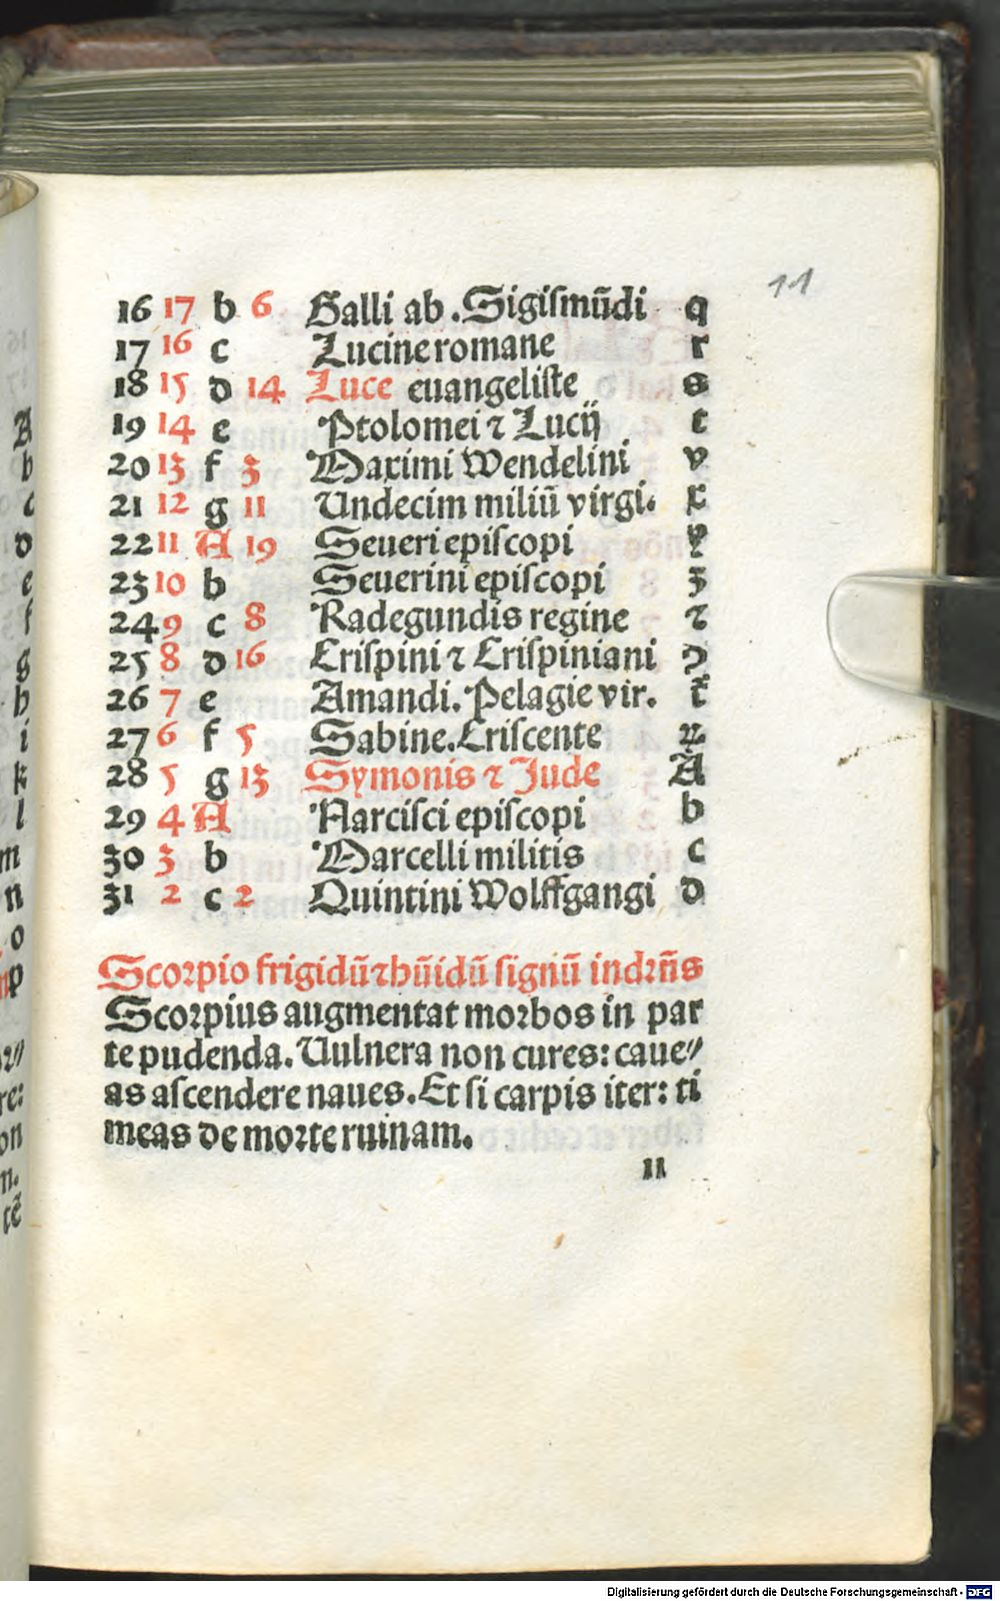 11
16 17 b 6 Galli ab. Sigismũdi q
17 16 c Lucine romane r
18 15 d 14 Luce euangeliste s
19 14 e Ptolomei ⁊ Lucij t
20 13 f 3 Maximi Wendelini v
21 12 g 11 Undecim miliũ virgi. x
22 11 A 19 Seueri episcopi y
23 10 b Seuerini episcopi z
24 9 c 8 Radegundis regine ⁊
25 8 d 16 Crispini ⁊ Crispiniani ꝯ
26 7 e Amandi. Pelagie vir.
27 6 f 5 Sabine. Criscente
28 5 g 13 Symonis ⁊ Jude A
29 4 A Narcisci episcopi b
30 3 b Marcelli militis c
31 2 c 2 Quintini Wolffgangi d
Scorpio frigidũ ⁊ hũidũ signũ indrñs
Scorpius augmentat morbos in par
te pudenda. Uulnera non cures: caue⸗
as ascendere naues. Et si carpis iter: ti
meas de morte ruinam.
11
A
b
c
d
e
f
g
h
i
k
l
m
n
o
p
Digitalisierung gefördert durch die Deutsche Forschungsgemeinschaft - DFG